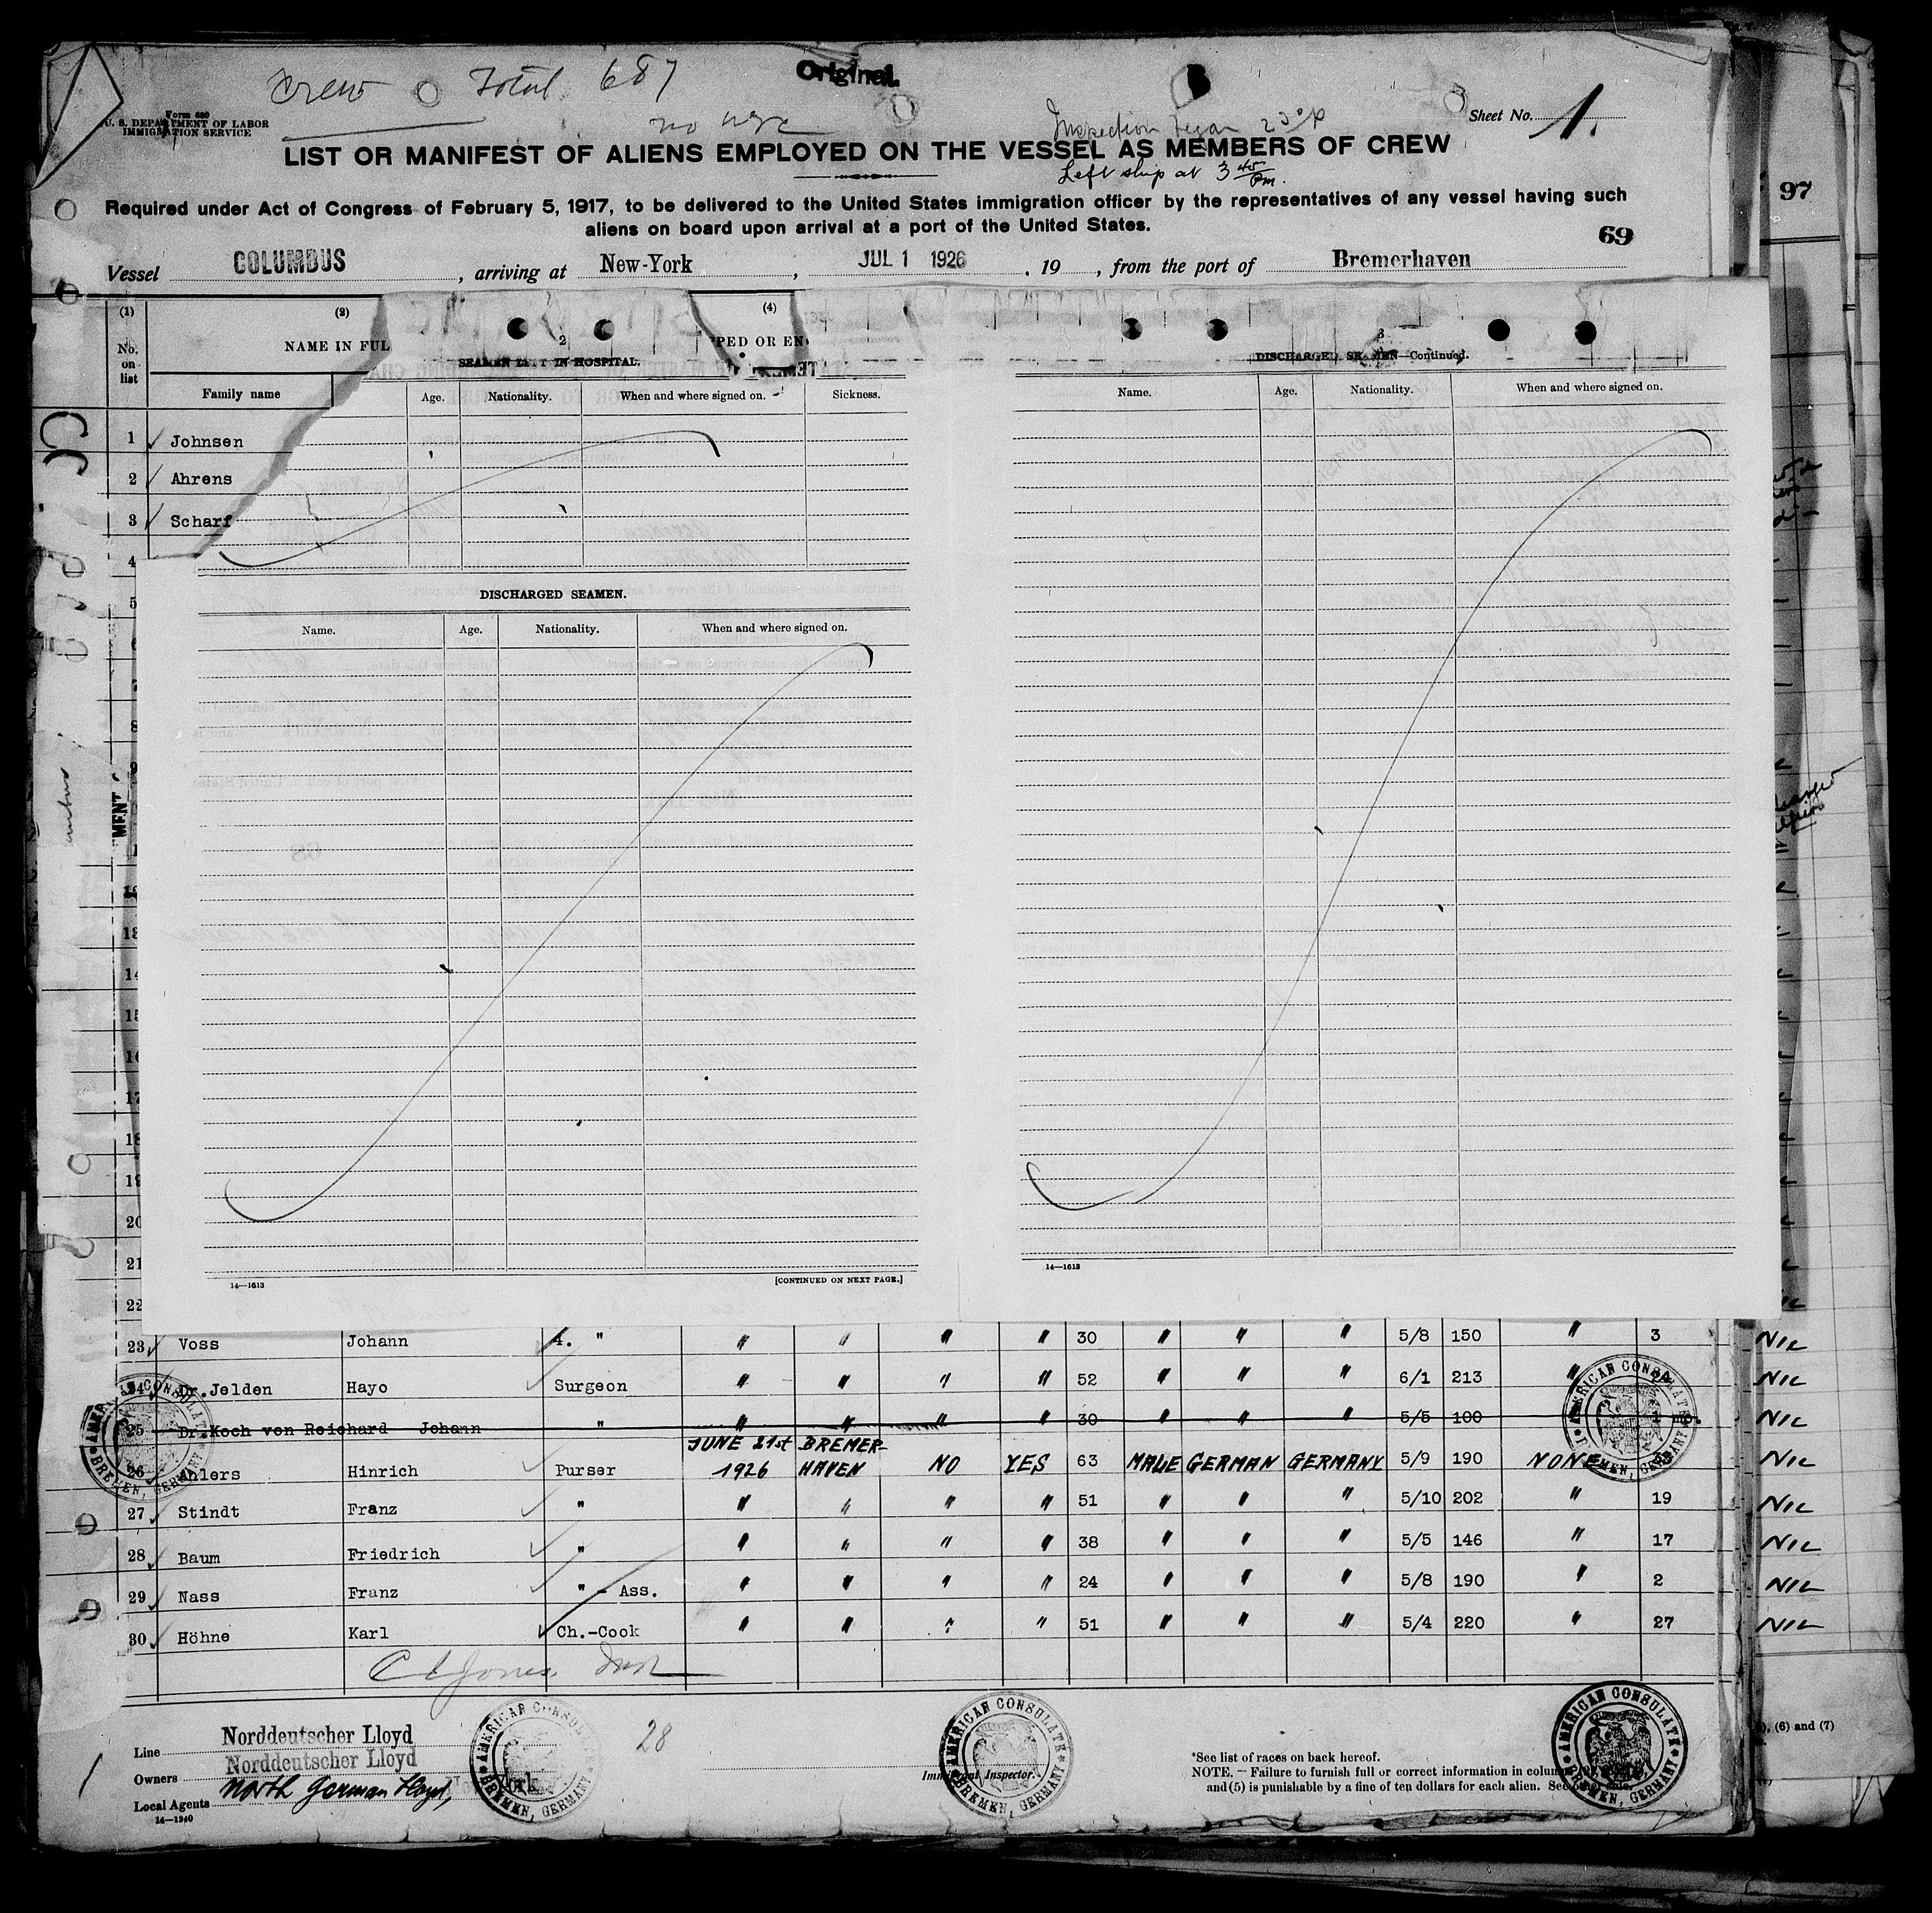 Crew Total 687
Original
Form 680
U. S. DEPARTMENT OF LABOR
IMMIGRATION SERVICE
Inspection
Sheet No. 1.
LIST OR MANIFEST OF ALIENS EMPLOYED ON THE VESSEL AS MEMBERS OF CREW
Left ship at 3 45 Pm.
Required under Act of Congress of February 5, 1917, to be delivered to the United States immigration officer by the representatives of any vessel having such
aliens on board upon arrival at a port of the United States.
97
69
Vessel COLUMBUS, arriving at New-York, JUL 1 1926, 19, from the port of Bremerhaven
(1) (2) (4)
No. on list
NAME IN FUL
PED OR EN
2
SEAMEN LEFT IN HOSPITAL.
3
DISCHARGED SEAMEN—Continued.
Family name
Age. Nationality. When and where signed on. Sickness.
Name. Age. Nationality. When and where signed on.
1 Johnsen
2 Ahrens
3 Scharf
4
5
DISCHARGED SEAMEN.
Name. Age. Nationality. When and where signed on.
6
7
8
9
MENT
12
13
14
15
16
17
18
19
20
21
14—1613
[CONTINUED ON NEXT PAGE.]
14—1613
22
23 Voss Johann 4. " " " " " 30 " " " 5/8 150 " 3 NIL
24 Dr. Jelden Hayo Surgeon " " " " 52 " " " 6/1 213 " NIL
25 Dr. Koch von Reichard Johann " " " " " 30 " " " 5/5 100 NIL
26 Ahlers Hinrich Purser JUNE 21st 1926 BREMER-HAVEN NO YES 63 MALE GERMAN GERMANY 5/9 190 NONE NIL
27 Stindt Franz " " " " " 51 " " " 5/10 202 " 19 NIL
28 Baum Friedrich " " " " " 38 " " " 5/5 146 " 17 NIL
29 Nass Franz " - Ass. " " " " 24 " " " 5/8 190 " 2 NIL
30 Höhne Karl Ch.-Cook " " " " 51 " " " 5/4 220 " 27 NIL
AMERICAN CONSULATE
BREMEN, GERMANY
AMERICAN CONSULATE
BREMEN, GERMANY
Line Norddeutscher Lloyd
Owners Norddeutscher Lloyd
Local Agents North German Lloyd, New York
14—1240
28
AMERICAN CONSULATE
BREMEN, GERMANY
AMERICAN CONSULATE
BREMEN, GERMANY
Immigrant Inspector.
AMERICAN CONSULATE
BREMEN, GERMANY
*See list of races on back hereof.
NOTE. — Failure to furnish full or correct information in columns
and (5) is punishable by a fine of ten dollars for each alien. See other side.
(6) and (7)